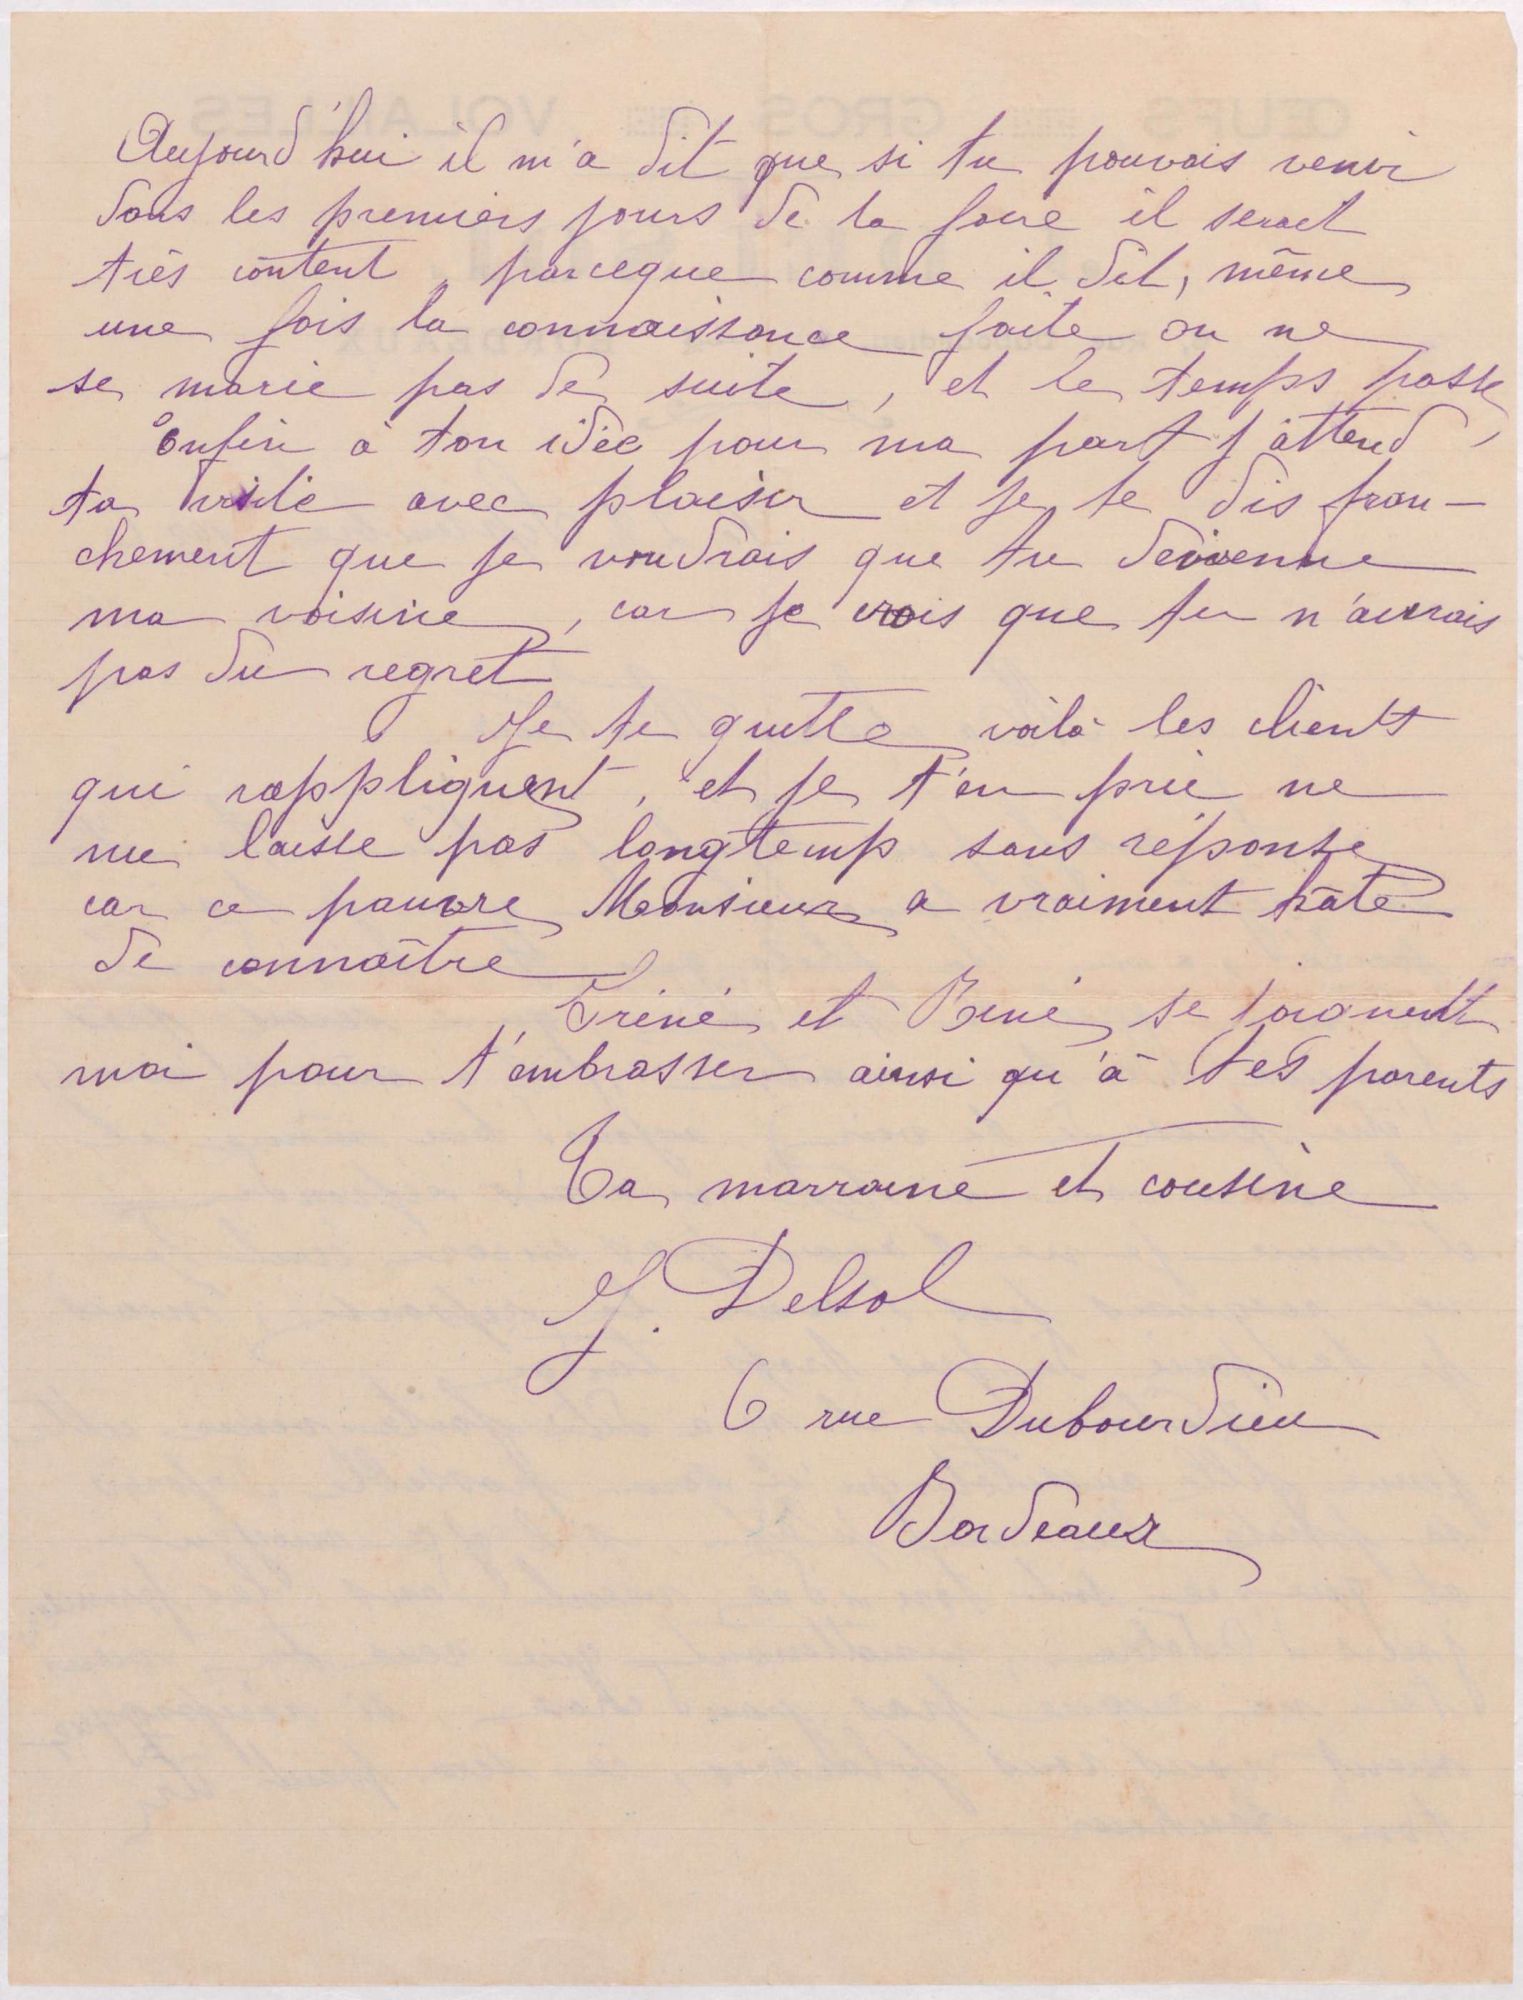 Aujourd'hui il m'a dit que si tu pouvais venir
dans les premiers jours de la foire il serait
très content, parceque comme il dit, même
une fois la connaissance faite on ne
se marie pas de suite, et le temps passe
enfin à ton idée pour ma part j'attend
ta visite avec plaisir et je te dis fran-
chement que je voudrais que tu devienne
ma voisine, car je crois que tu n'aurais
pas du regret
Je te quitte voilà les clients
qui rappliquent, et je t'en prie ne
me laisse pas longtemp sans réponse
car ce pauvre Monsieur a vraiment hâte
de connaître
Iréné et René se joignent
moi pour t'embrasser ainsi qu'à tes parents
Ta marraine et cousine
J. Delsol
6 rue Dubourdieu
Bordeaux